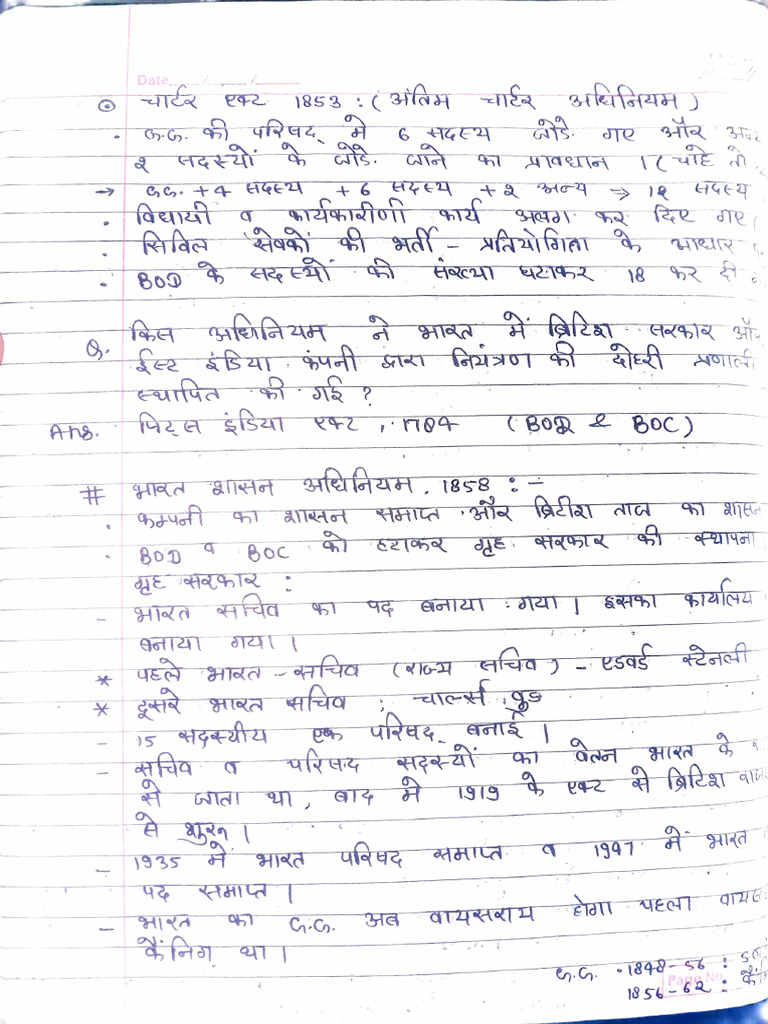 Date / /
⊙ चार्टर एक्ट 1853 : ( अंतिम चार्टर अधिनियम )
. G.G. की परिषद् में 6 सदस्य जोडे गए और
2 सदस्यों के जोडे जाने का प्रावधान । ( चाहे तो
→ G.G. + 4 सदस्य + 6 सदस्य + 2 अन्य ⇒ 12 सदस्य
. विधायी व कार्यकारीणी कार्य अलग कर दिए गए।
. सिविल सेवकों की भर्ती - प्रतियोगिता के आधार
. BOD के सदस्यों की संख्या घटाकर 18 कर दी
Q. किस अधिनियम ने भारत में ब्रिटिश सरकार
ईस्ट इंडिया कंपनी द्वारा नियंत्रण की दोहरी प्रणाली
स्थापित की गई ?
Ans. पिट्स इंडिया एक्ट , 1784 ( BOD & BOC )
# भारत शासन अधिनियम , 1858 : -
. कम्पनी का शासन समाप्त और ब्रिटीश ताज का
. BOD व BOC को हटाकर गृह सरकार की स्थापना
गृह सरकार :
- भारत सचिव का पद बनाया गया । इसका कार्यालय
बनाया गया ।
* पहले भारत - सचिव ( राज्य सचिव ) - एडवर्ड स्टेनली
* दूसरे भारत सचिव : चार्ल्स वुड
- 15 सदस्यीय एक परिषद् बनाई ।
- सचिव व परिषद सदस्यों का वेतन भारत के
से जाता था , बाद में 1919 के एक्ट से ब्रिटिश
से शुरू ।
- 1935 में भारत परिषद समाप्त व 1947 में भारत
पद समाप्त ।
- भारत का G.G. अब वायसराय होगा पहला
कैनिंग था ।
G.G. - 1848 - 56 :
Page No.
1856 - 62 :